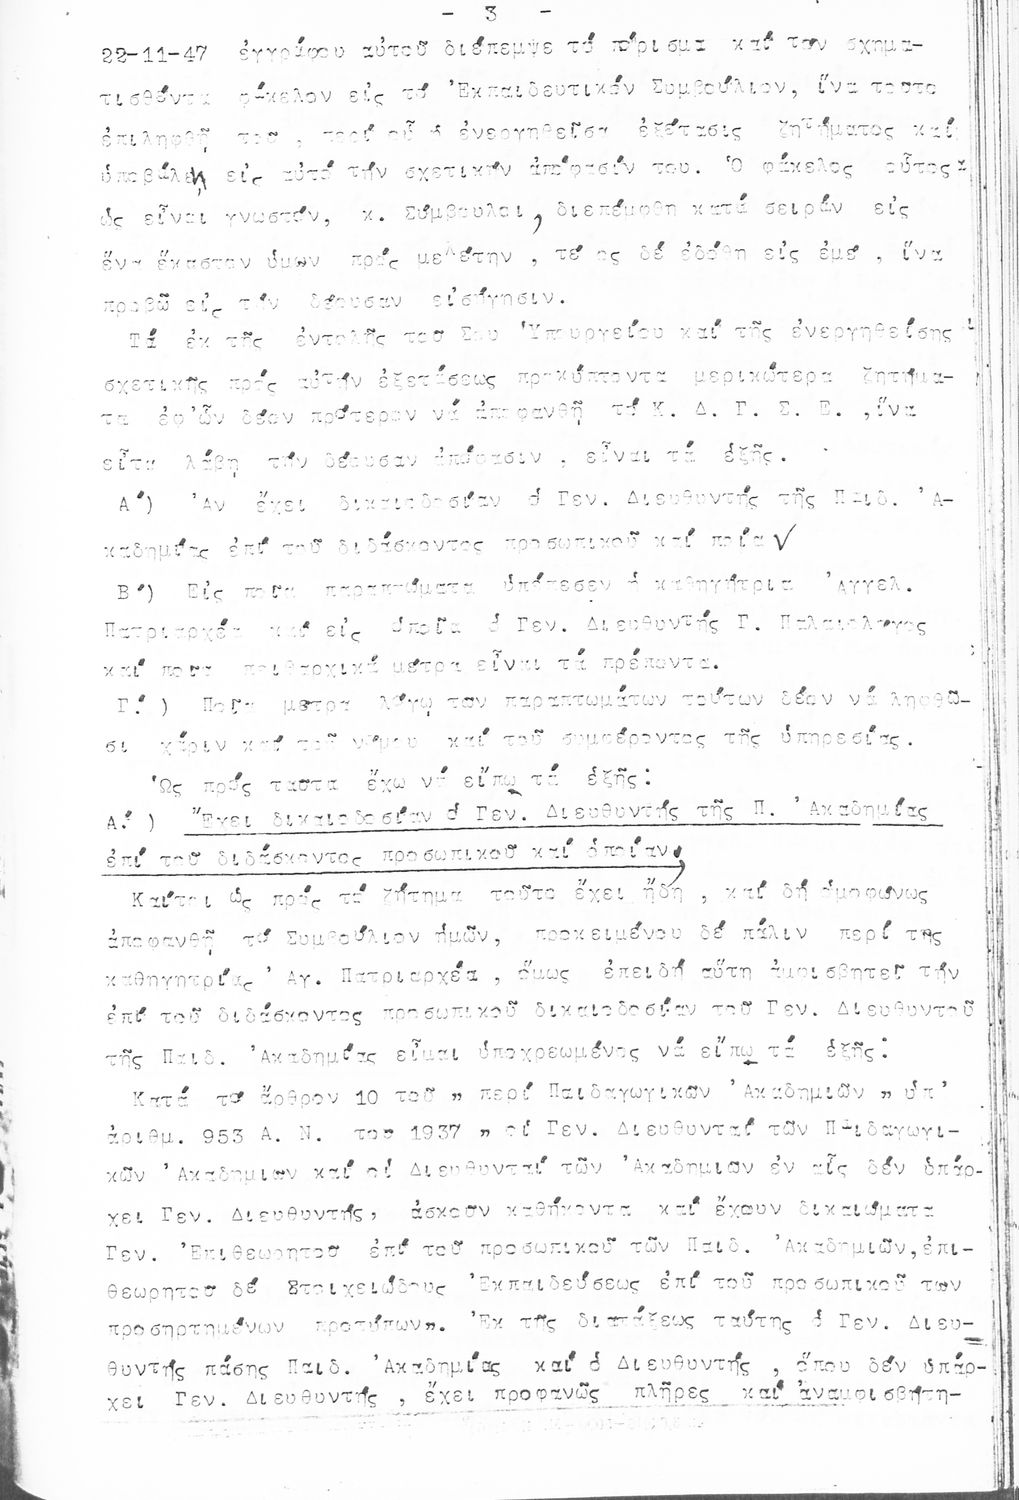 - 3 -
22-11-47 ἐγγράφου αὐτοῦ διέπεμψε τό πόρισμα καί τόν σχημα-
τισθέντα φάκελον εἰς τό Ἐκπαιδευτικόν Συμβούλιον, ἵνα τοῦτο
ἐπιληφθῇ τοῦ , περί οὗ ἡ ἐνεργηθεῖσα ἐξέτασις ζητήματος καί
ὑποβάλῃ εἰς αὐτό τήν σχετικήν ἀπόφασίν του. Ὁ φάκελος οὗτος
ὡς εἶναι γνωστόν, κ. Σύμβουλοι, διεπέμφθη κατά σειράν εἰς
ἕνα ἕκαστον ὑμῶν πρός μελέτην , τέλος δέ ἐδόθη εἰς ἐμέ , ἵνα
προβῶ εἰς τήν δέουσαν εἰσήγησιν.
Τά ἐκ τῆς ἐντολῆς τοῦ Σου Ὑπουργείου καί τῆς ἐνεργηθείσης
σχετικῆς πρός αὐτήν ἐξετάσεως προκύπτοντα μερικώτερα ζητήμα-
τα ἐφ'ὧν δέον πρότερον νά ἀποφανθῇ τό Κ. Δ. Γ. Σ. Ε. ,ἵνα
εἶτα λάβῃ τήν δέουσαν ἀπόφασιν , εἶναι τά ἑξῆς.
Α') Ἄν ἔχει δικαιοδοσίαν ὁ Γεν. Διευθυντής τῆς Παιδ. Ἀ-
καδημίας ἐπί τοῦ διδάσκοντος προσωπικοῦ καί ποία
Β') Εἰς ποῖα παραπτώματα ὑπέπεσεν ἡ καθηγήτρια Ἀγγελ.
Πατριαρχέα καί εἰς ὁποῖα ὁ Γεν. Διευθυντής Γ. Παλαιολόγος
καί ποῖα πειθαρχικά μέτρα εἶναι τά πρέποντα.
Γ.') Ποῖα μέτρα λόγῳ τῶν παραπτωμάτων τούτων δέον νά ληφθῶ-
σι χάριν καί τοῦ νόμου καί τοῦ συμφέροντος τῆς ὑπηρεσίας.
Ὡς πρός ταῦτα ἔχω νά εἴπω τά ἑξῆς:
Α.') Ἔχει δικαιοδοσίαν ὁ Γεν. Διευθυντής τῆς Π. Ἀκαδημίας
ἐπί τοῦ διδάσκοντος προσωπικοῦ καί ὁποίαν;
Καίτοι ὡς πρός τό ζήτημα τοῦτο ἔχει ἤδη , καί δή ὁμοφώνως
ἀποφανθῇ τό Συμβούλιον ἡμῶν, προκειμένου δέ πάλιν περί τῆς
καθηγητρίας Ἀγ. Πατριαρχέα , ὅμως ἐπειδή αὕτη ἀμφισβητεῖ τήν
ἐπί τοῦ διδάσκοντος προσωπικοῦ δικαιοδοσίαν τοῦ Γεν. Διευθυντοῦ
τῆς Παιδ. Ἀκαδημίας εἶμαι ὑποχρεωμένος νά εἴπω τά ἑξῆς:
Κατά τό ἄρθρον 10 τοῦ „ περί Παιδαγωγικῶν Ἀκαδημιῶν „ ὑπ'
ἀριθμ. 953 Α. Ν. τοῦ 1937 „ οἱ Γεν. Διευθυνταί τῶν Παιδαγωγι-
κῶν Ἀκαδημιῶν καί οἱ Διευθυνταί τῶν Ἀκαδημιῶν ἐν αἷς δέν ὑπάρ-
χει Γεν. Διευθυντής, ἀσκοῦν καθήκοντα καί ἔχουν δικαιώματα
Γεν. Ἐπιθεωρητοῦ ἐπί τοῦ προσωπικοῦ τῶν Παιδ. Ἀκαδημιῶν,ἐπι-
θεωρητοῦ δέ Στοιχειώδους Ἐκπαιδεύσεως ἐπί τοῦ προσωπικοῦ τῶν
προσηρτημένων προτύπων„. Ἐκ τῆς διατάξεως ταύτης ὁ Γεν. Διευ-
θυντής πάσης Παιδ. Ἀκαδημίας καί ὁ Διευθυντής , ὅπου δέν ὑπάρ-
χει Γεν. Διευθυντής , ἔχει προφανῶς πλῆρες καί ἀναμφισβήτη-